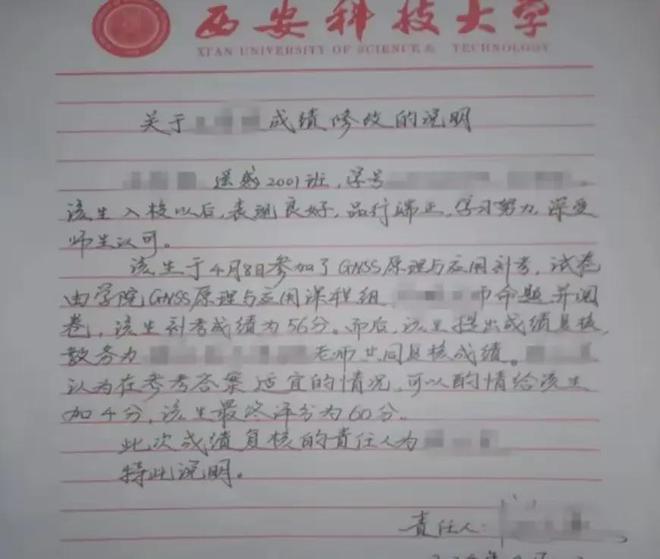 西安科技大学
XI'AN UNIVERSITY OF SCIENCE & TECHNOLOGY
关于 成绩修改的说明
遥感2001班，学号
该生入校以后，表现良好，品行端正，学习努力，深受
师生认可。
该生于4月8日参加了GNSS原理与应用补考，试卷
由学院GNSS原理与应用课程组 命题并阅
卷，该生补考成绩为56分。而后，该生提出成绩复核，
教务为 老师共同复核成绩。
认为在参考答案适宜的情况，可以酌情给该生
加4分，该生最终评分为60分。
此次成绩复核的责任人为
特此说明。
责任人：